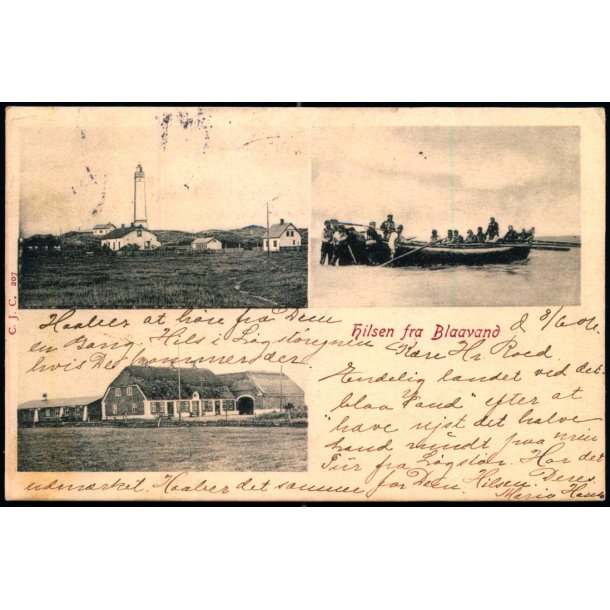 C. J. C. 207
Hilsen fra Blaavand
d 8/6 06.
Kære Hr Roed.
Endelig landet ved det
"blaa Vand" efter at
have rejst det halve
Land rundt paa min
Tur fra Løgstør. Har det
udmærket. Haaber det samme for Dem. Hilsen. Deres
Maria
Haaber at høre fra Dem
en Gang. Hils i Løgstøregnen
hvis De kommer der.